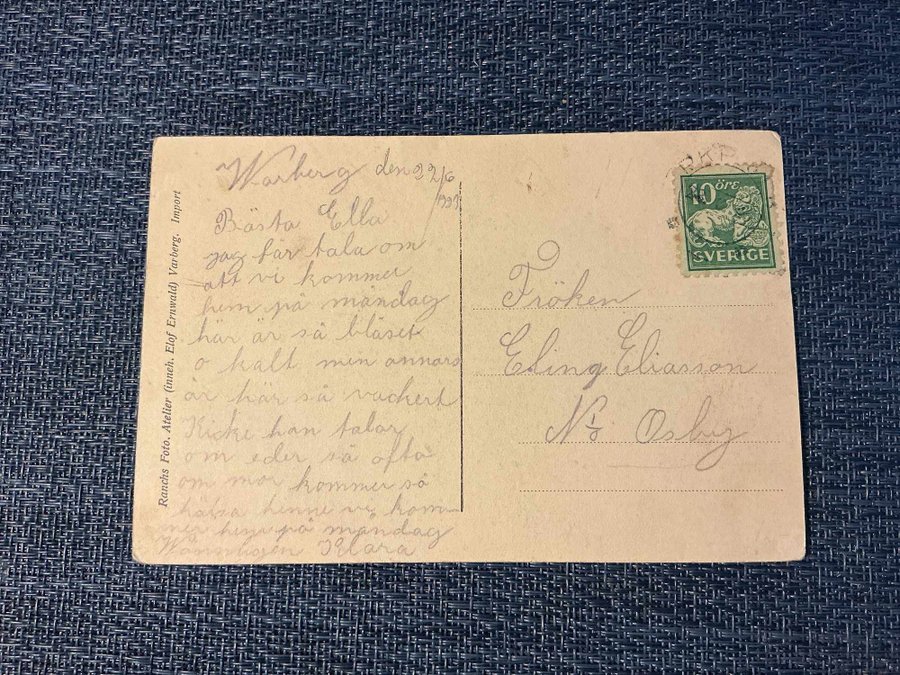 Warberg den 22/6
Bästa Ella
jag får tala om
att vi kommer
hem på måndag
här är så blåset
o kalt men annars
är här så vackert
Kicke han talar
om eder så ofta
om mor kommer så
hälsa henne vi kom-
mer hem på måndag
Klara
Ranchs Foto. Atelier (inneh. Elof Ernwald) Varberg. Import
10 ÖRE
SVERIGE
Fröken
Eling Eliasson
Osby